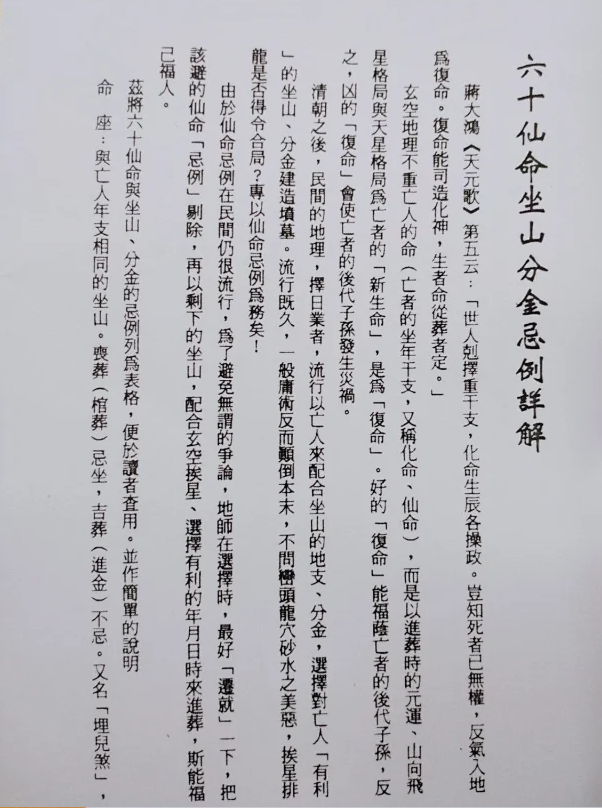 六十仙命坐山分金忌例詳解
蔣大鴻《天元歌》第五云:「世人剋擇重干支,化命生辰各操政。豈知死者已無權,反氣入地
爲復命。復命能司造化神,生者命從葬者定。」
玄空地理不重亡人的命(亡者的坐年干支,又稱化命、仙命),而是以進葬時的元運、山向飛
星格局與天星格局爲亡者的「新生命」,是爲「復命」。好的「復命」能福蔭亡者的後代子孫,反
之,凶的「復命」會使亡者的後代子孫發生災禍。
清朝之後,民間的地理,擇日業者,流行以亡人來配合坐山的地支、分金,選擇對亡人「有利
」的坐山、分金建造墳墓。流行既久,一般庸術反而顚倒本末,不問巒頭龍穴砂水之美惡,挨星排
龍是否得令合局?專以仙命忌例爲務矣!
由於仙命忌例在民間仍很流行,爲了避免無謂的爭論,地師在選擇時,最好「遷就」一下,把
該避的仙命「忌例」剔除,再以剩下的坐山,配合玄空挨星、選擇有利的年月日時來進葬,斯能福
己福人。
茲將六十仙命與坐山、分金的忌例列爲表格,便於讀者查用。並作簡單的說明
命 座:與亡人年支相同的坐山。喪葬(棺葬)忌坐,吉葬(進金)不忌。又名「埋兒煞」,